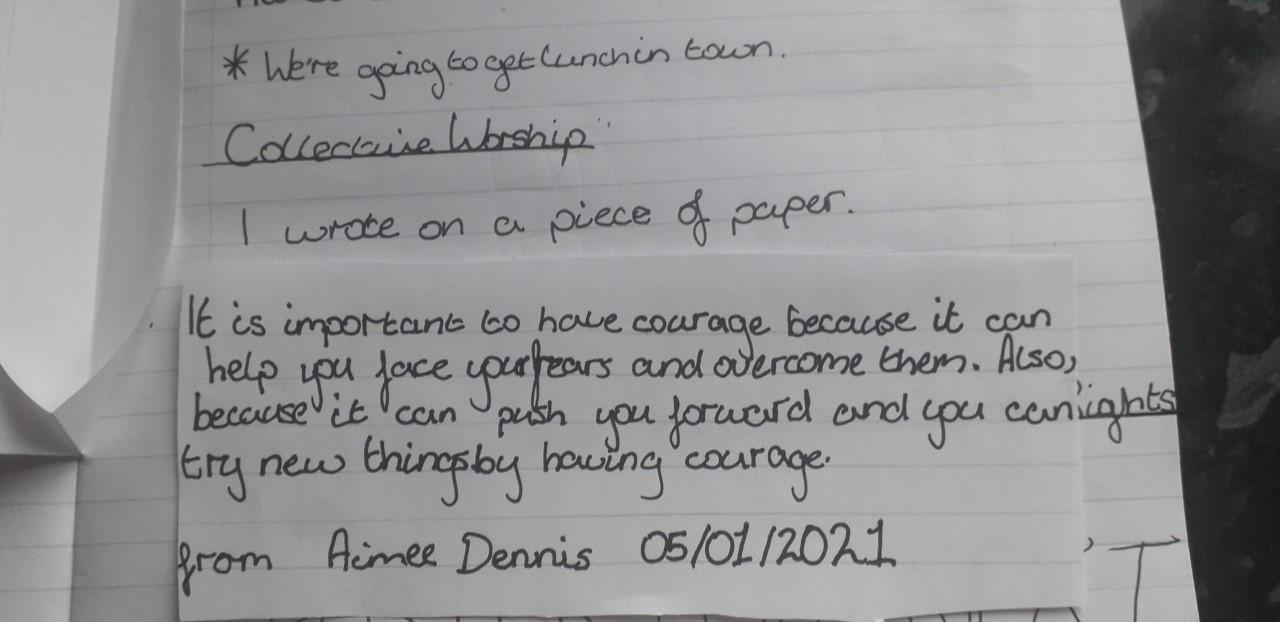 * We're going to get lunch in town.
Collective Worship
I wrote on a piece of paper.
It is important to have courage because it can
help you face your fears and overcome them. Also,
because it can push you forward and you can
try new things by having courage.
from Aimee Dennis 05/01/2021